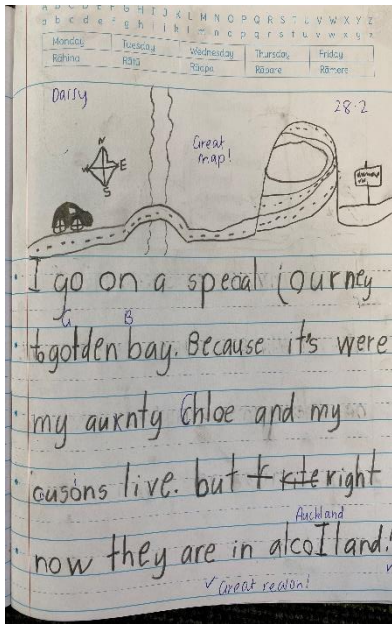 A B C D E F G H I J K L M N O P Q R S T U V W X Y Z
a b c d e f g h i j k l m n o p q r s t u v w x y z
Monday Tuesday Wednesday Thursday Friday
Rāhina Rātū Rāapa Rāpare Rāmere
Daisy 28·2
Great map!
N
W E
S
I go on a special journey
G B
to golden bay. Because it's were
my aurnty Chloe and my
cusons live. but right
Auckland
now they are in alcolland!
✓ Great reason!